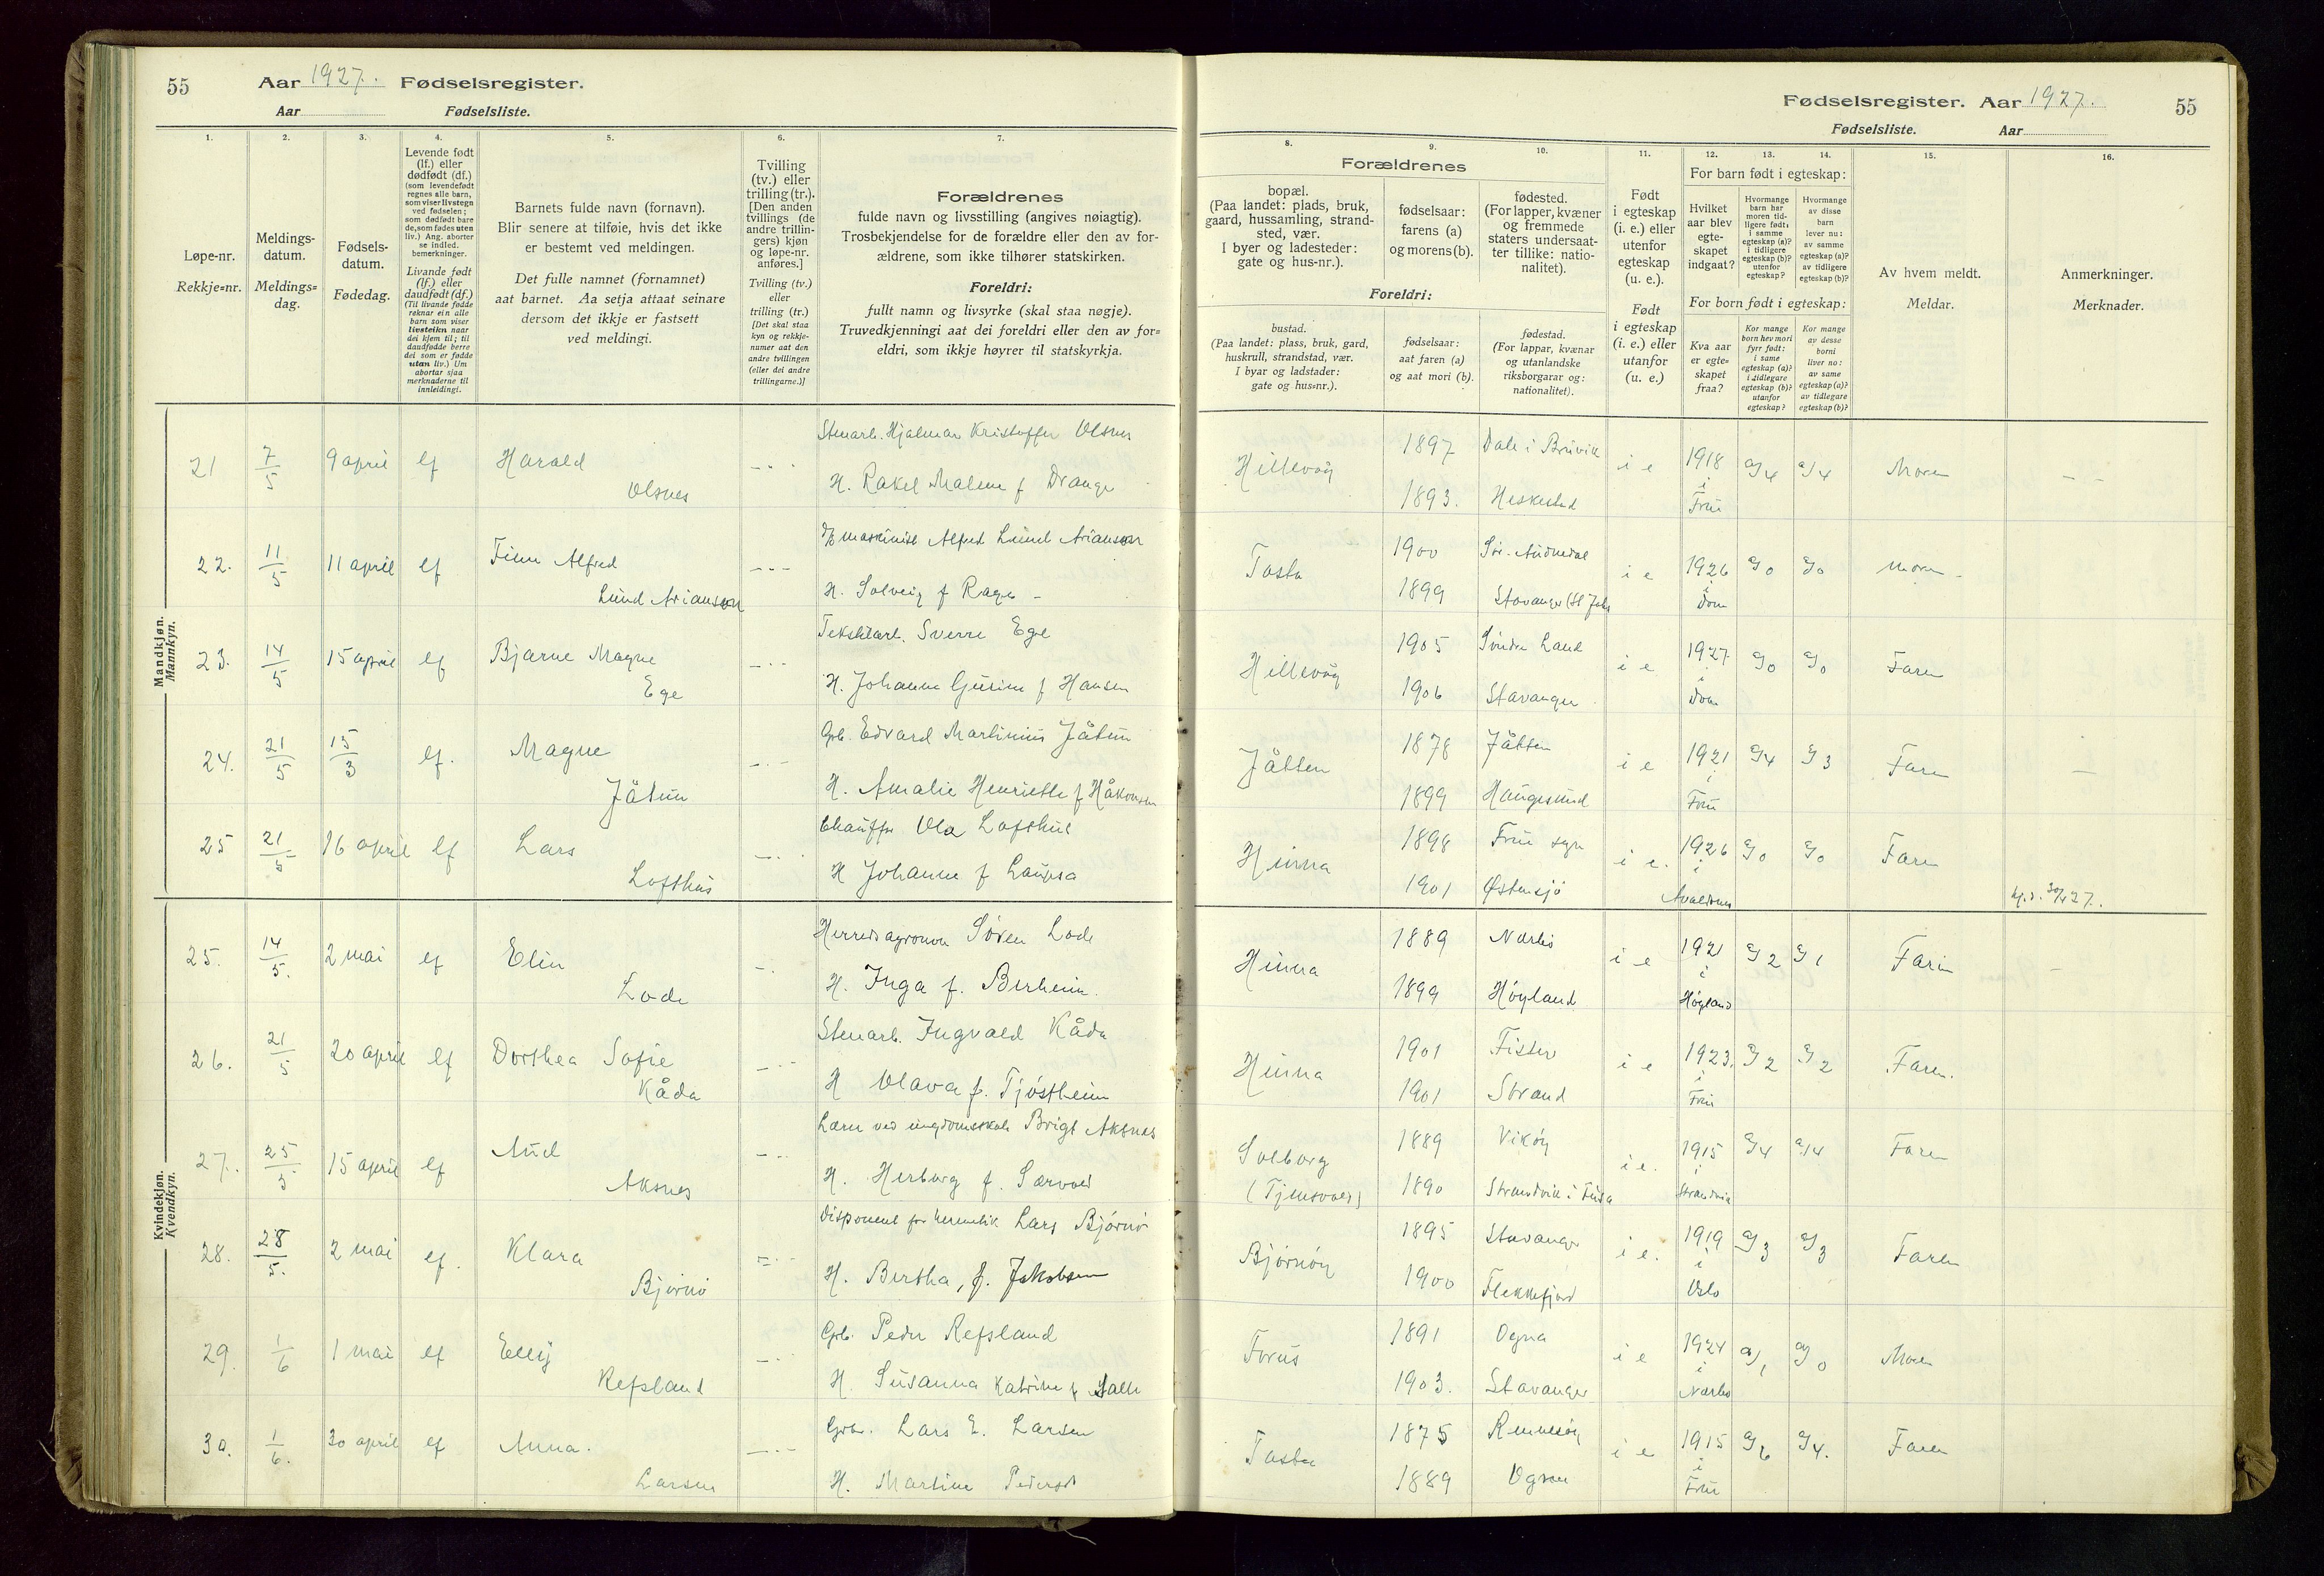 55 Aar 1927. Fødselsregister.
Aar Fødselsliste.
1.
2.
3.
4.
5.
6.
7.
Løpe-nr.
Rekkje=nr.
Meldings-
datum.
Meldings=
dag.
Fødsels-
datum.
Fødedag.
Levende født
(lf.) eller
dødfødt (df.)
(som levendefødt
regnes alle barn,
som viser livstegn
ved fødselen;
som dødfødt bare
de, som fødes uten
liv.) Ang. aborter
se indled.
bemerkninger.
Livande født
(lf.) eller
daudfødt (df.)
(Til livande fødde
reknar ein alle
barn som viser
livsteikn naar
dei kjem til; til
daudfødde berre
dei som er fødde
utan liv.) Um
abortar sjaa
merknaderne til
innleidingi.
Barnets fulde navn (fornavn).
Blir senere at tilføie, hvis det ikke
er bestemt ved meldingen.
Det fulle namnet (fornamnet)
aat barnet. Aa setja attaat seinare
dersom det ikkje er fastsett
ved meldingi.
Tvilling
(tv.) eller
trilling (tr.).
[Den anden
tvillings (de
andre trillin-
gers) kjøn
og løpe-nr.
anføres.]
Tvilling (tv.)
eller
trilling (tr.)
[Det skal staa
kyn og rekkje-
numer aat den
andre tvillingen
(eller dei andre
trillingarne.)]
Forældrenes
fulde navn og livsstilling (angives nøiagtig).
Trosbekjendelse for de forældre eller den av for-
ældrene, som ikke tilhører statskirken.
Foreldri:
fullt namn og livsyrke (skal staa nøgje).
Truvedkjenningi aat dei foreldri eller den av for=
eldri, som ikkje høyrer til statskyrkja.
Mandkjøn.
Mannkyn.
21 7/5 9 april lf Harald Olsnes
Stenarb. Hjalmar Kristoffer Olsnes
H. Rakel Malene f Drange
22. 11/5 11 april lf Finn Alfred Lund Arianson
maskinist Alfred Lund Arianson
H. Solveig f Rage
23. 14/5 15 april lf Bjarne Magne Ege
Tekstilarb. Sverre Ege
H. Johanne Gurine f Hansen
24. 21/5 15/3 lf. Magne Jåtun
Grb. Edvard Martinius Jåtun
H. Amalie Henriette f Håkonsen
25 21/5 16 april lf Lars Lofthus
Chauffør Ola Lofthus
H Johanne f
Kvindekjøn.
Kvendkyn.
25. 14/5. 2 mai lf Elin Lode
Herredsagronom Sören Lode
H. Inga f. Berheim.
26. 21/5 20 april lf Dorthea Sofie Kåda
Stenarb. Ingvald Kåda
H Olava f. Tjöstheim
27. 25/5 15 april lf Aud Aksnes
Lærer ved ungdomsskole Brigt Aksnes
H. Herborg f. Sørvoll
28. 28/5. 2 mai lf. Klara Björnö
Disponent for hermetik Lars Björnö
H. Bertha, f. Jakobsen
29. 1/6 1 mai lf Elly Refsland
Grb. Peder Refsland
H. Susanna Katrine f Salte
30. 1/6. 30 april lf Anna. Larsen
Grb. Lars E. Larsen
H. Martine Pedersd
Fødselsregister. Aar 1927. 55
Fødselsliste. Aar
8.
9.
10.
11.
12.
13.
14.
15.
16.
Forældrenes
bopæl.
(Paa landet: plads, bruk,
gaard, hussamling, strand-
sted, vær.
I byer og ladesteder:
gate og hus-nr.).
fødselsaar:
farens (a)
og morens (b).
fødested.
(For lapper, kvæner
og fremmede
staters undersaat-
ter tillike: natio-
nalitet).
Foreldri:
bustad.
(Paa landet: plass, bruk, gard,
huskrull, strandstad, vær.
I byar og ladstader:
gate og hus=nr.).
fødselsaar:
aat faren (a)
og aat mori (b).
fødestad.
(For lappar, kvænar
og utanlandske
riksborgarar og:
nationalitet).
Født
i egteskap
(i. e.) eller
utenfor
egteskap
(u. e.).
Født
i egteskap
(i. e.) eller
utanfor
(u. e.)
For barn født i egteskap:
Hvilket
aar blev
egte-
skapet
indgaat?
Hvormange
barn har
moren tid-
ligere født:
i samme
egteskap (a)?
i tidligere
egteskap (b)?
utenfor
egteskap?
Hvormange
av disse
barn
lever nu:
av samme
egteskap (a)?
av tidligere
egteskap (b)?
For born født i egteskap:
Kva aar
er egte=
skapet
fraa?
Kor mange
born hev mori
fyrr født:
i same
egteskap (a)?
i tidlegare
egteskap (b)?
utanfor
egteskap?
Kor mange
av desse
borni
liver no:
av same
egteskap (a)?
av tidlegare
egteskap (b)?
Av hvem meldt.
Meldar.
Anmerkninger.
Merknader.
Hillevåg 1897 Dale i Bruvik i e 1918 i Frue a/4 a/4 Moren
1893. Heskestad
Tasta 1900 Sör-Audnedal i e 1926 i Dom a/0 a/0 Moren
1899 Stavanger
Hillevåg 1905 Söndre Land i e 1927 i Dom a/0 a/0 Faren
1906 Stavanger
Jåtten 1878 Jåtten i e 1921 i Frue a/4 a/3 Faren
1899 Haugesund
Hinna 1898 Frue sogn i e. 1926 i Avaldsnes a/0 a/0 Faren
1901 Østensjö
Hinna 1889 Nærbö i e 1921 i Høyland a/2 a/1 Faren
1899 Höyland
Hinna 1901 Fister i e 1923. i Frue a/2 a/2 Faren.
1901 Strand
Solborg 1889 Viköy i e. 1915 i Strandvik a/4 a/4 Faren
(Tjensvoll) 1890 Strandvik i Fusa
Björnöy 1895 Stavanger i e. 1919 i Oslo a/3 a/3 Faren
1900 Flekkefjord
Forus 1891 Ogna i e 1924 i Nærbö a/1 a/0 Moren
1903. Stavanger
Tasta 1875 Rennesöy i e 1915 i Frue a/6 a/4. Faren
1889